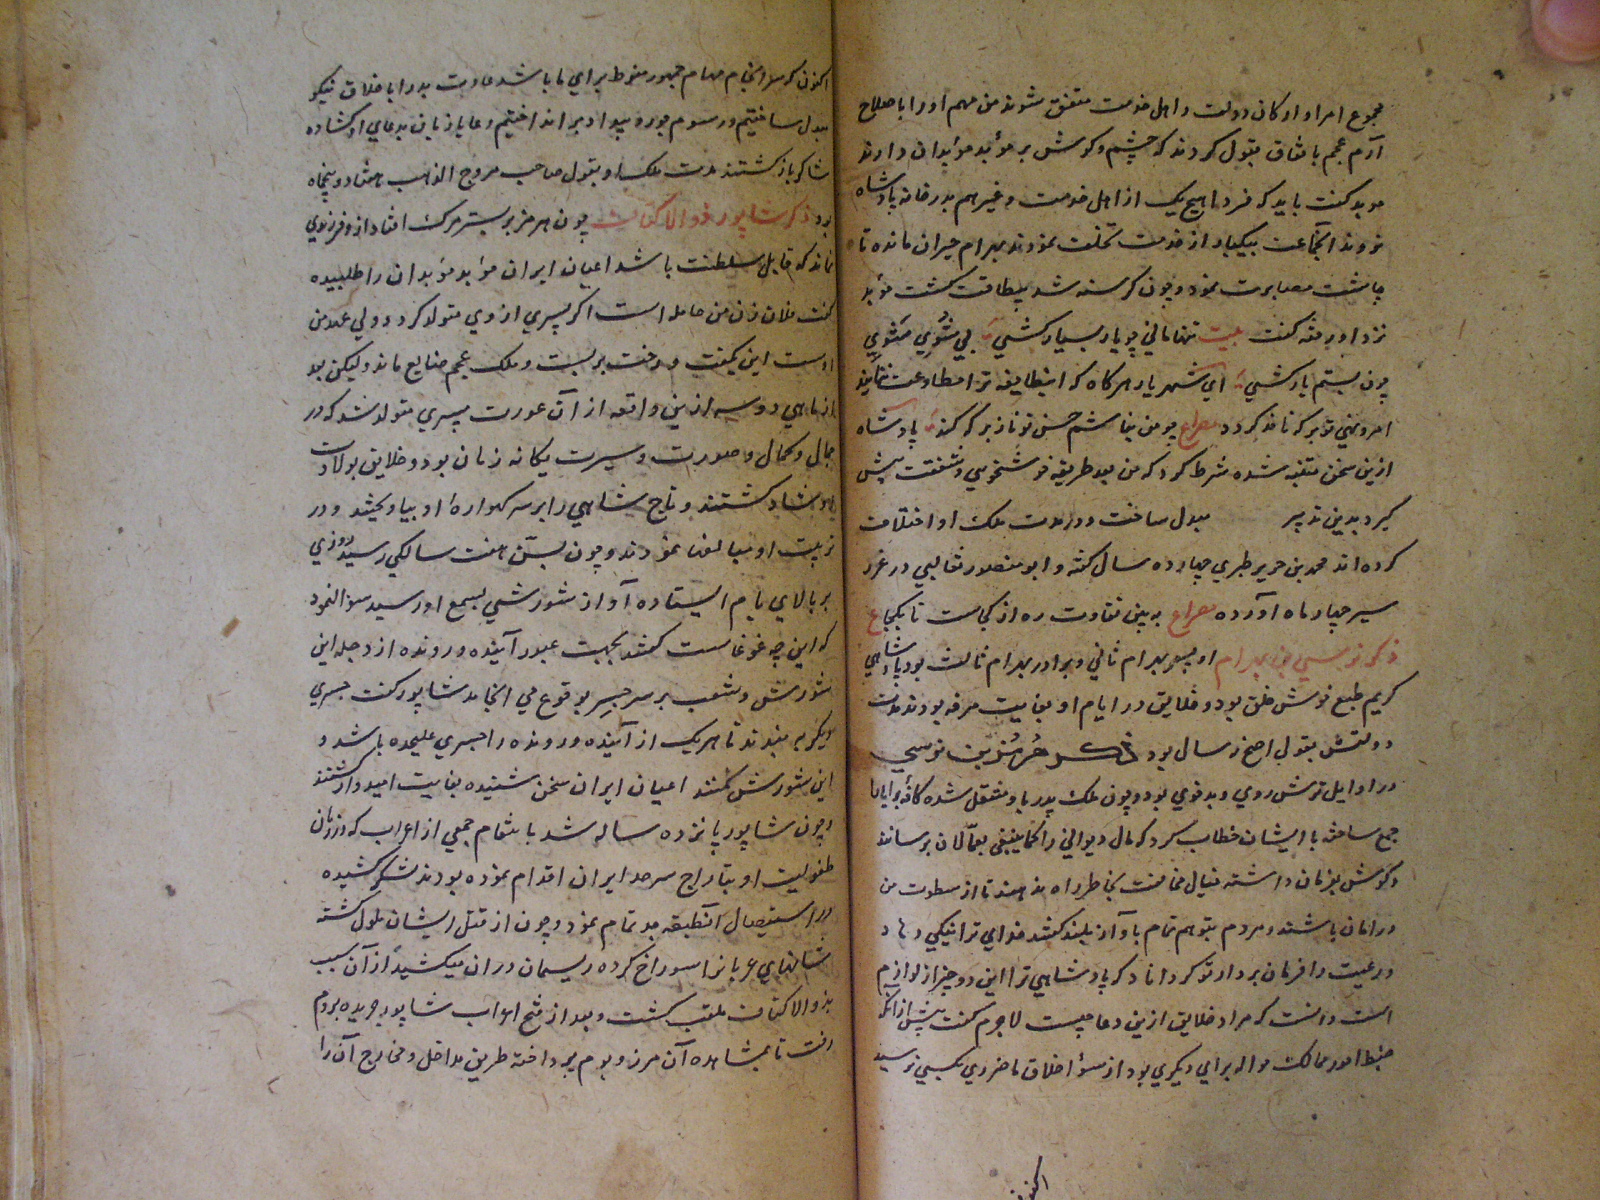 مجموع امرا و ارکان دولت و اهل خدمت متفق شوند من مهم او را باصلاح
آرم عجم باتفاق قبول کردند که چشم و گوش بر مؤبد مؤبدان دارند
موبد گفت باید که فردا هیچ یک از اهل خدمت و غیرهم بدرخانه پادشاه
نروند انجماعت بیکبار از خدمت تخلف نمودند بهرام حیران مانده تا
چاشت مصابرت نمود و چون گرسنه شد بیطاقت گشت مؤبد
نزد او رفته گفت بیت تنها مانی چو یار بسیار کشی
چون بستم یار کشی ای شهریار هرگاه که اینطایفه ترا مطاوعت ننمایند
امر و نهی تو بر که نافذ گردد مصراع چو من نباشم حسن تو ناز بر که کند پادشاه
ازین سخن متنبه شده شرط کرد که من بعد طریقه خوشخویی و شفقت پیش
گیرد بدین تدبیر مبدل ساخت و در مدت ملک او اختلاف
کرده‌اند محمد بن جریر طبری چهارده سال گفته و ابو منصور ثعالبی در غرر
سیر چهار ماه آورده مصراع به بین تفاوت ره از کجاست تا بکجا
ذکر نرسی بن بهرام او پسر بهرام ثانی و برادر بهرام ثالث بود پادشاهی
کریم طبع خوش خلق بود و خلایق در ایام او بغایت مرفه بودند مدت
دولتش بقول اصح نه سال بود ذکر هرمز بن نرسی
در اوایل ترش روی و بدخوی بود و چون ملک پدر باو منتقل شده کافه برایا را
جمع ساخته با ایشان خطاب کرد که مال دیوانی را کما ینبغی بعمّالان برسانند
و گوش بفرمان داشته خیال مخالفت بخاطر راه ندهند تا از سطوت من
در امان باشند و مردم بتوهم تمام بآواز بلند گفتند خدای ترا نیکی دهاد
و رعیت را فرمان بردار تو گرداناد که پادشاهی ترا این دو چیز از لوازم
است دانست که مراد خلایق ازین دعا چیست لاجرم گفت پیش ازانکه
ضبط امور ممالک حواله برای دیگری بود از سؤ اخلاق ما ضرری بکسی نرسید
اکنون
اکنون که سرانجام مهام جمهور منوط برای ما باشد عادت بد را باخلاق نیکو
مبدل ساختیم و رسوم جور و بیداد بر انداختیم رعایا زبان بدعای او گشاده
شاکر باز گشتند مدت ملک او بقول صاحب مروج الذهب هفت سال و پنجماه
بود ذکر شاپور ذو الاکتاف چون هرمز بر بستر مرگ افتاد ازو فرزندی
نماند که قابل سلطنت باشد اعیان ایران مؤبد مؤبدان را طلبیده
گفت فلان زن من حامله است اگر پسری از وی متولد گردد ولی عهد من
اوست این بگفت و رخت بربست و ملک عجم ضایع ماند و لیکن بعد
از ماهی دو سه ازین واقعه از آن عورت پسری متولد شد که در
جمال و کمال و صورت و سیرت یگانه زمان بود و خلایق بولادت
او شاد گشتند و تاج شاهی را بر سر گهواره او بیاویختند و در
تربیت او مبالغه نمودند و چون بسن هفت سالگی رسید روزی
بر بالای بام ایستاده آواز شورشی بسمع او رسید سؤال نمود
که این چه غوغاست گفتند بجهت عبور آینده و رونده از دجله این
شورش و شغب بر سر جسر بوقوع می انجامد شاپور گفت جسری
دیگر به بندند تا هر یک از آینده و رونده را جسری علیحده باشد و
این شورش کمتر اعیان ایران سخن شنیده بغایت امیدوار گشتند
و چون شاپور پانزده ساله شد بانتقام جمعی از اعراب که در زمان
طفولیت او بتاراج سرحد ایران اقدام نموده بودند لشکر کشیده
در استیصال آنطبقه جد تمام نمود و چون از قتل ایشان ملول گشته
شانهای عربانرا سوراخ کرده ریسمان در ان میکشید ازآن سبب
بذو الاکتاف ملقب گشت و بعد از فتح اعراب شاپور جریده بروم
رفت تا بمشاهده آن مرز و بوم پرداخته طریق مداخل و مخارج آن را